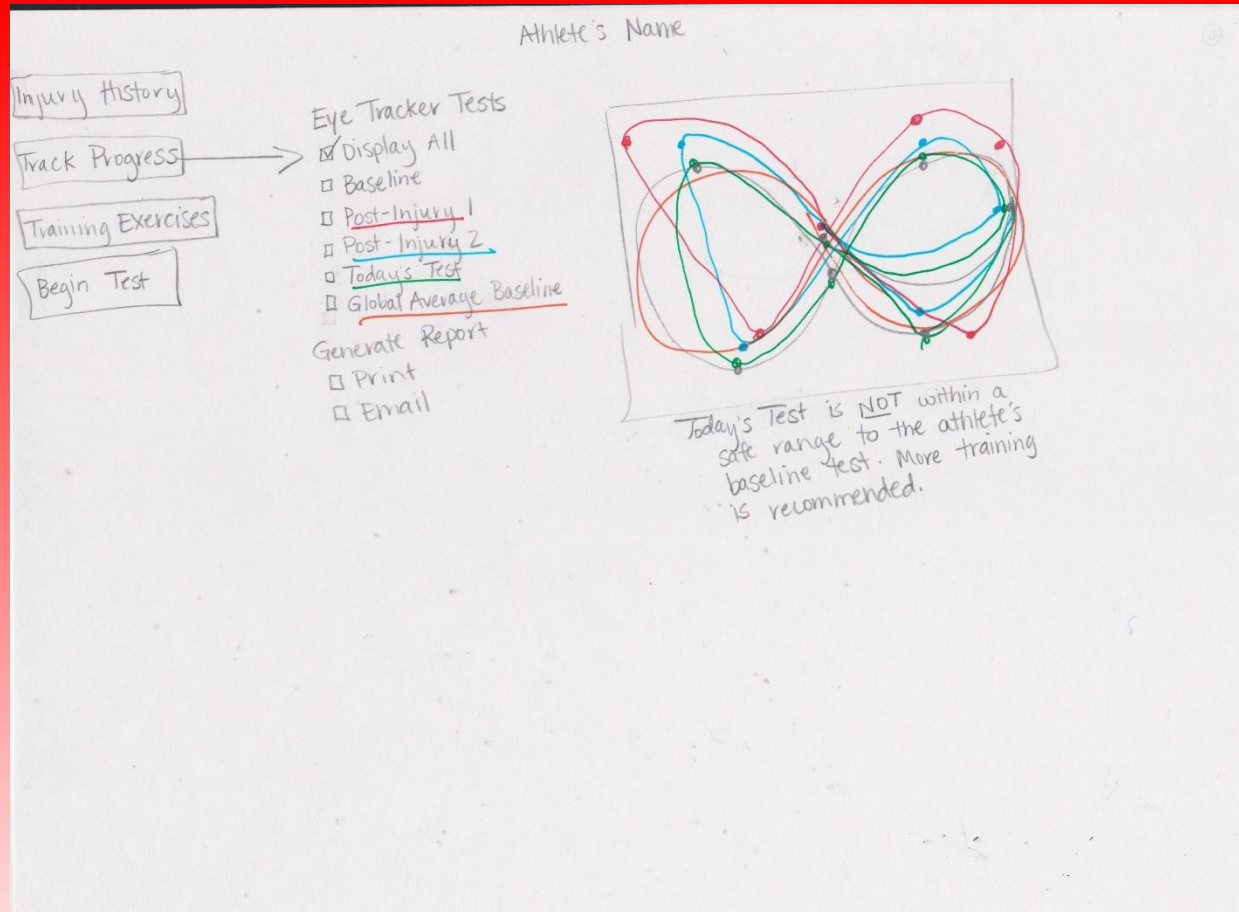 Athlete's Name
3
Injury History
Track Progress
Training Exercises
Begin Test
Eye Tracker Tests
Display All
Baseline
Post-Injury 1
Post-Injury 2
Today's Test
Global Average Baseline
Generate Report
Print
Email
Today's Test is NOT within a
safe range to the athlete's
baseline test. More training
is recommended.